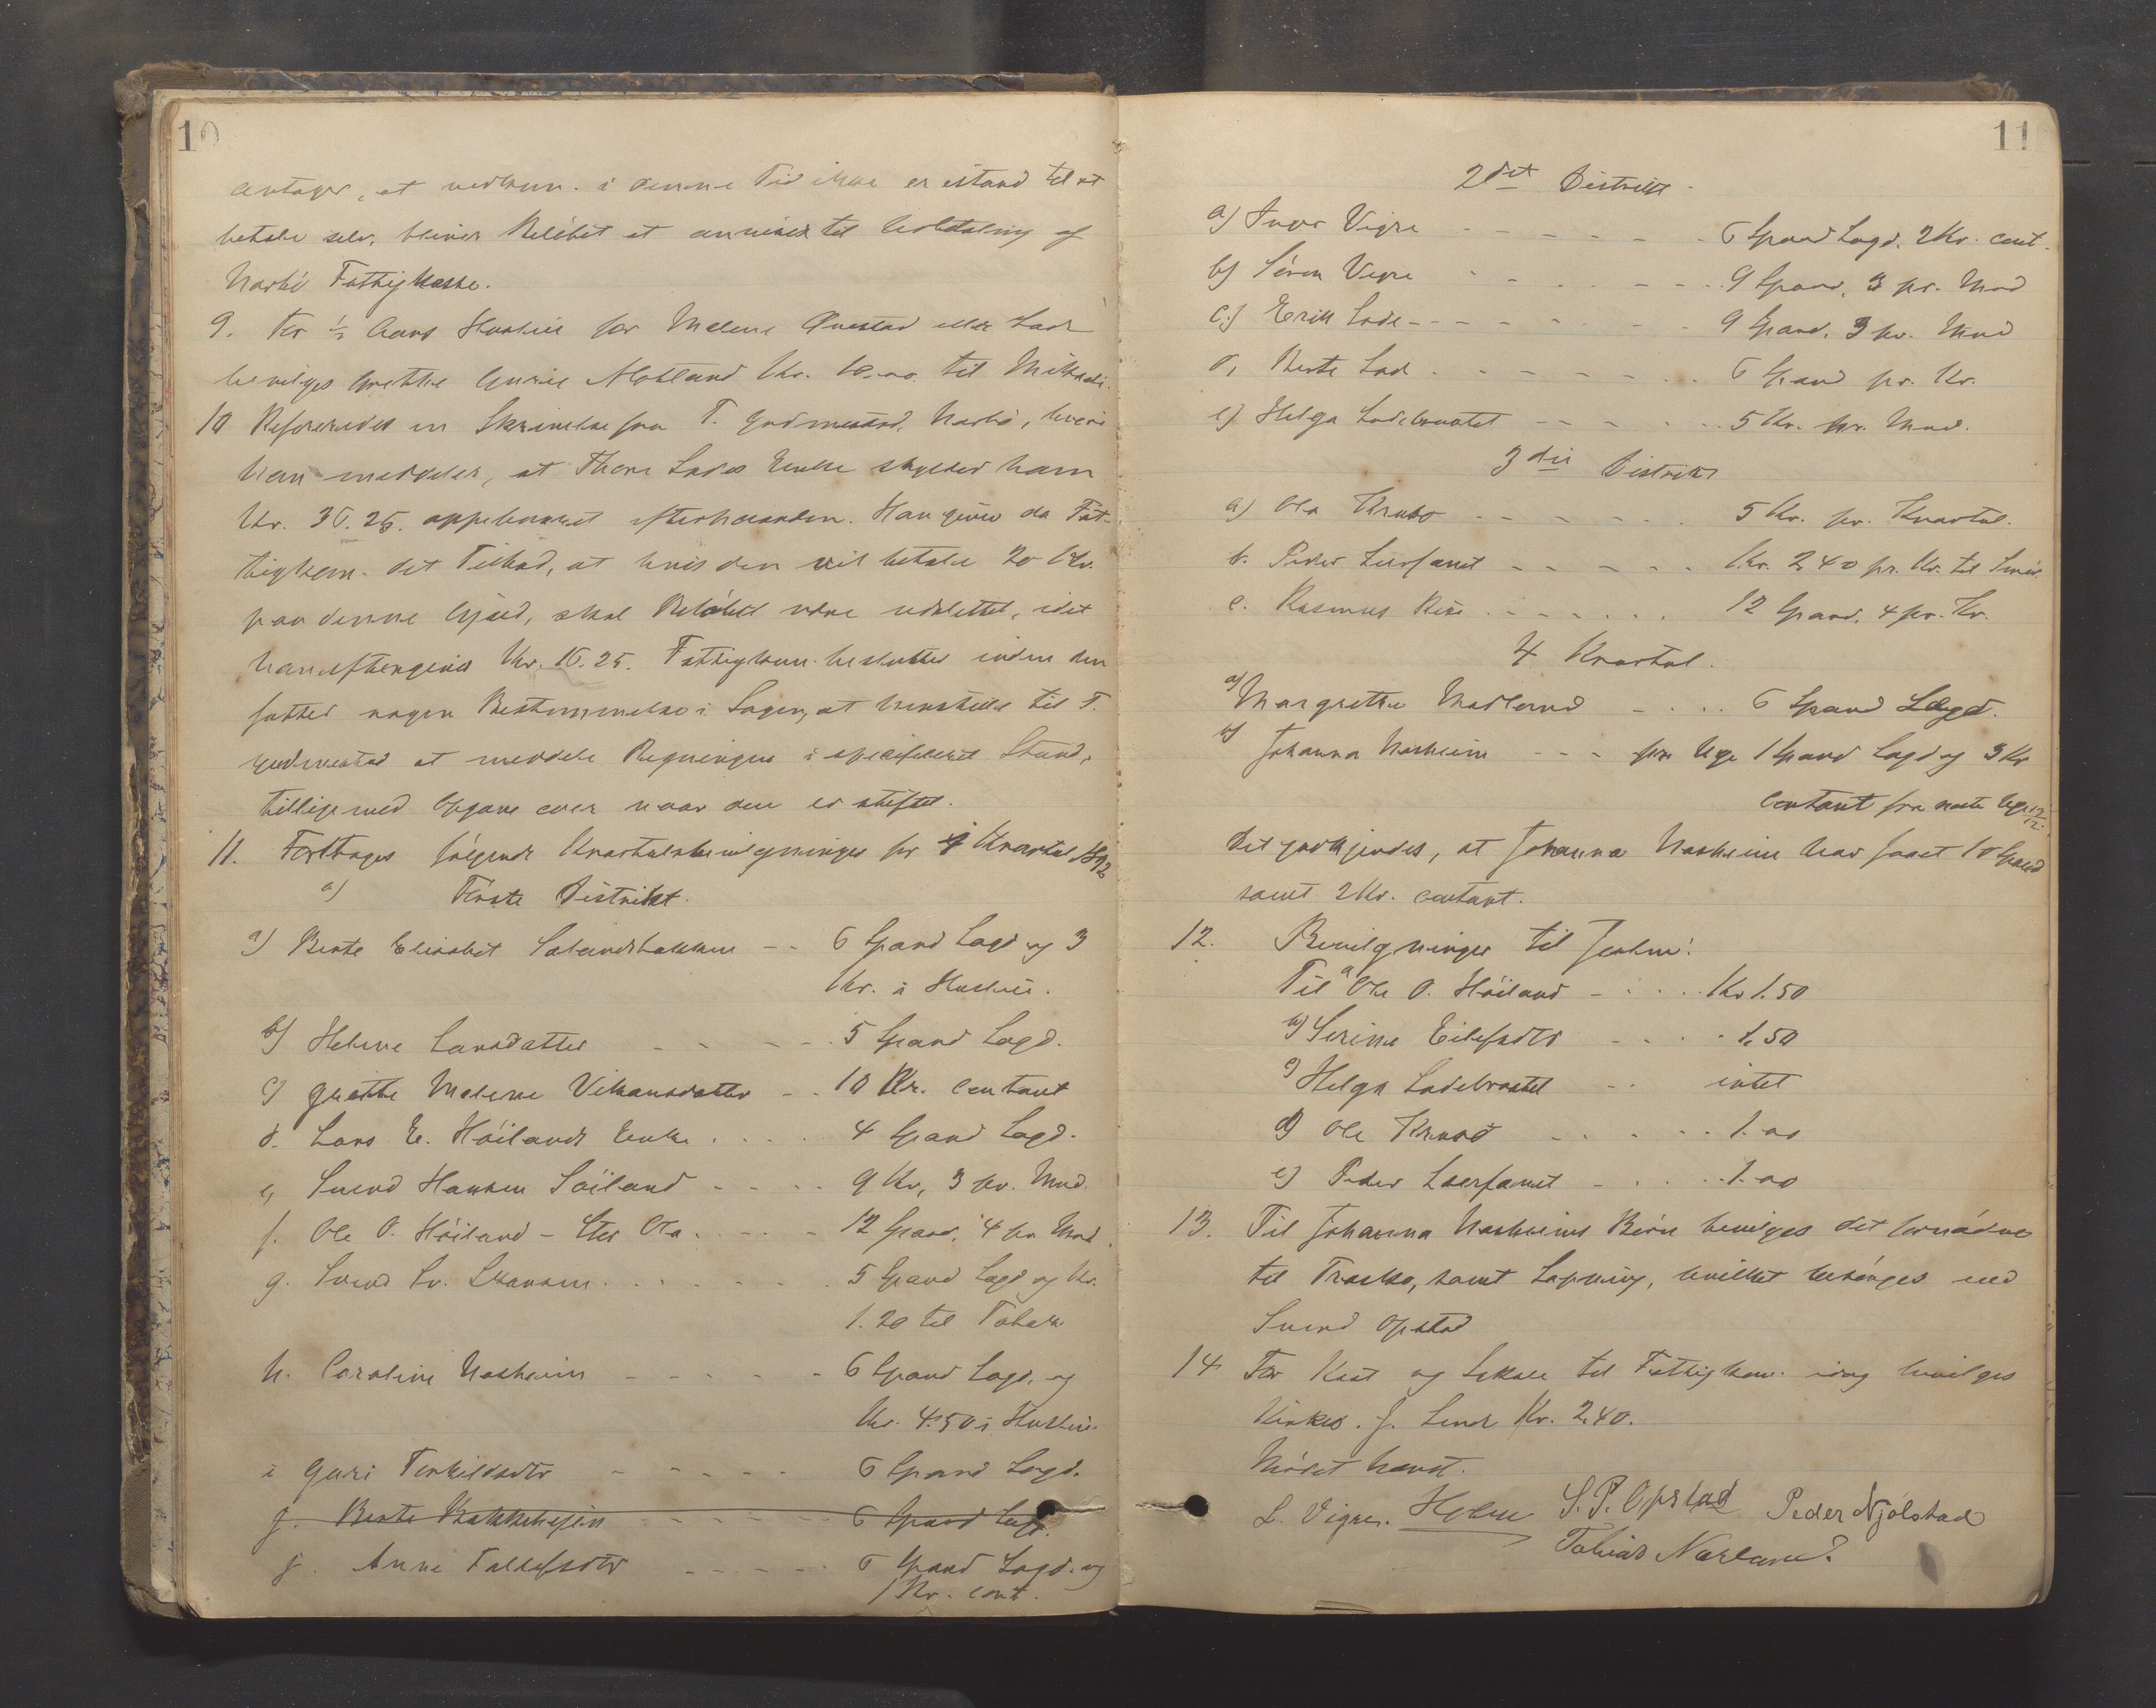 10
antager, at vedkom. i denne Tid ikke er istand til at
betale selv, bliver Beløbet at anvises til Udbetaling af
Narbø Fattigkasse.
9. For ½ Aars Husleie for Malene Qvestad eller Lade
bevilges Grethe Gurine Motland Kr. 10.00 til Mikaeli.
10 Refereredes en Skrivelse fra T. Gudmestad, Narbø, hvori
han meddeler, at Thore Lades Enke skylder ham
Kr. 36.25. oppebaaret efterhaanden. Han giver da Fat-
tigkom. det Tilbud, at hvis den vil betale 20 Kr.
paa denne Gjæld, skal Beløbet være udslettet, idet
han eftergiver Kr. 16.25. Fattigkom. beslutter inden den
fatter nogen Bestemmelse i Sagen, at henstille til T.
Gudmestad at meddele Regningen i specificeret Stand,
tilligemed Opgave over naar den er stiftet.
11. Foretages følgende Kvartalsbevilgninger for 4 Kvartal 1892
a) Første Distrikt.
a) Berte Elisabet Sælandsbakken -- 6 Spand Lagd og 3
Kr. i Husleie.
b) Helene Larsdatter - - - - 5 Spand Lagd.
c) Grethe Malene Vikansdatter - - 10 Kr. contant
d. Lars E. Høilands Enke . . . . 4 Spand Lagd.
e, Svend Hansen Søiland - - - - 9 Kr, 3 pr. Mnd.
f. Ole O. Høiland - Stes Ola . . . . - 12 Spand, 4 pr. Mnd.
g. Svend Sv. Skansen . . . . . . . 5 Spand Lagd og Kr.
1.20 til Tobak
h. Caroline Nasheim - - - - - 6 Spand Lagd. og
Kr. 4.50 i Husleie.
i Guri Torkildsdtr - - - - - 6 Spand Lagd.
j. Berte Bakkehejen - - - - - 6 Spand Lagd.
j. Anne Tollefsdtr - - - - - 6 Spand Lagd. og
1 Kr. cont.
11
2det Distrikt.
a) Ivar Vigre - - - - - - 6 Spand Lagd. 2 Kr. cont.
b) Søren Vigre - - - - - - 9 Spand, 3 pr. Mnd
c.) Erik Lode - - - - - - - 9 Spand, 3 pr. Mnd
d, Berte Lode . - - - - - . 6 Spand pr. Kv.
e) Helga Ladebraatet - - - - - 5 Kr. pr. Mnd.
3die Distrikt
a) Ole Kruse - - - - - - 5 Kr. pr. Kvartal.
b. Peder Leerfanit - - - - - Kr. 2,40 pr. Kv. til Smør.
c. Rasmus Rise . - . . . . 12 Spand, 4 pr. Kv.
4 Kvartal.
a) Margrethe Madland - . . . 6 Spand Lagd.
b) Johanna Nasheim - - - pr. Uge 1 Spand Lagd og 3 Kr
Contant fra neste Uge 12/12.
Det godkjendes, at Johanna Nasheim har faaet 10 Spand
samt 2 Kr. contant.
12. Bevilgninger til Julen:
Til a Ole O. Høiland - . . . . Kr 1.50
b) Serine Eilefsdtr - . . . . 1,50
c) Helga Ladebraatet - . . intet
d) Ole Kruse - . . . . . 1.00
e) Peder Leerfanit - . . . . 1.00
13. Til Johanna Nasheims Børn bevilges det fornødne
til Træsko, samt Lapning, hvilket besørges ved
Svend Opstad
14 For Kost og Lokale til Fattigkom. idag bevilges
Kirkes. J. Lende Kr. 2,40.
Mødet hævet.
L. Vigre. Holm S. P. Opstad Peder Njølstad
Tobias Nærland.